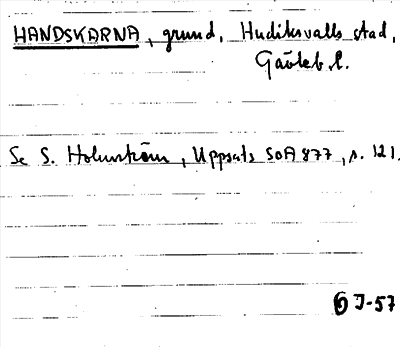 HANDSKARNA, grund, Hudiksvalls stad,
Gävleb. l.
Se S. Holmström, Uppsats SOA 877, s. 121.
J-57